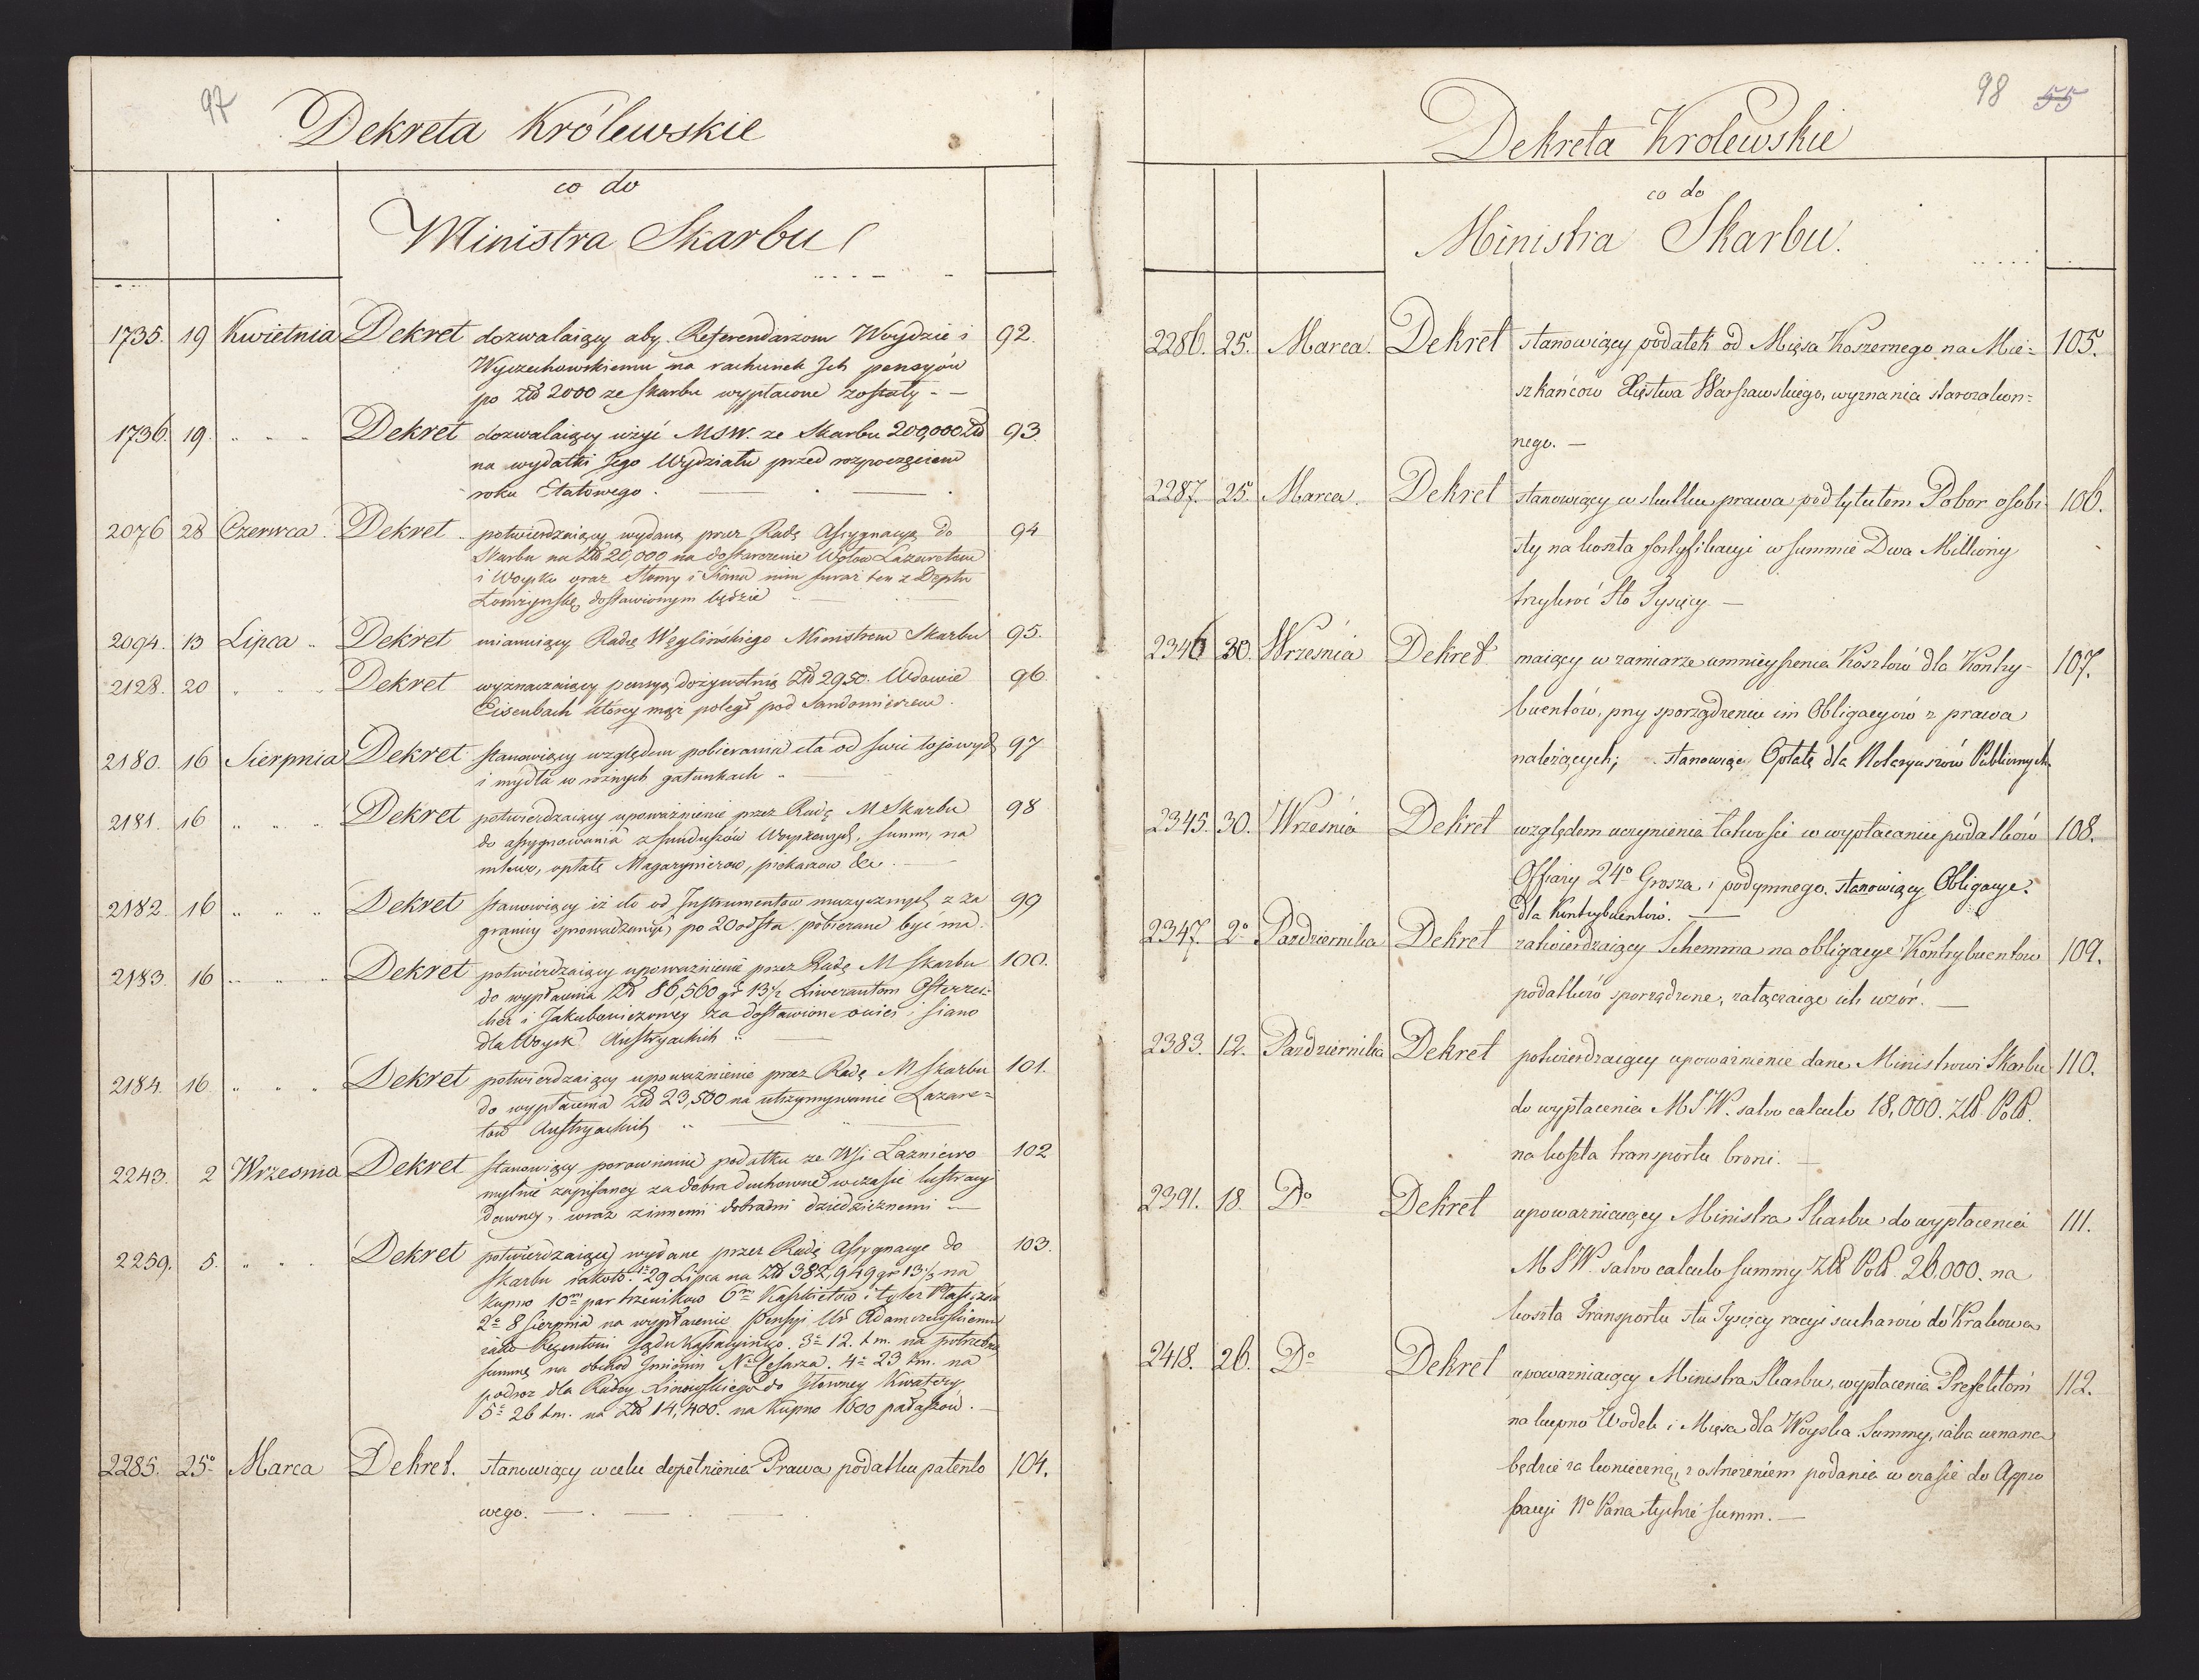 97
Dekreta Królewskie
co do
Ministra Skarbu
1735. 19 Kwietnia Dekret dozwalaiący aby Referendarzom Woydzie i 92.
Wyczechowskiemu na rachunek Ich pensyów
po Złł 2000 ze skarbu wypłacone zostały - —
1736. 19. " " " Dekret dozwalaiący użyć MSW. ze Skarbu 200,000 Złł 93.
na wydatki Jego Wydziału przed rozpoczęciem
roku Etatowego.
2076 28 Czerwca Dekret potwierdzaiący wydaną przez Radę Assygnacyą do 94
Skarbu na Złł 20,000 na dostarczenie Wołów Lazaretom
i Woysku oraz Słomy i Siana nim furaż ten z Deptu
Łomżyńskę dostawionym będzie
2094. 13 Lipca " Dekret mianuiący Radcę Węglińskiego Ministrem Skarbu 95.
2128. 20 " " " Dekret wyznaczaiący pensyą dożywotnią Złł 2950. Wdowie 96.
Eisenbach którey mąż poległ pod Sandomierzem.
2180. 16 Sierpnia Dekret stanowiący względem pobierania cła od świc łojowych 97
i mydła w różnych gatunkach
2181. 16 " " " Dekret potwierdzaiący upoważnienie przez Radę M Skarbu 98
do assygnowania z funduszów Woyskowych, summ, na
mlewo, opłatę Magazynierow, piekarzow &c. —
2182 16 " " " Dekret stanowiący iż cło od Instrumentow muzycznych z za 99
granicy sprowadzanych po 20 od sta pobierane być ma.
2183. 16 " " " Dekret potwierdzaiący upoważnienie przez Radę M Skarbu 100.
do wypłacenia Złł 86,560 gr 13½ Liwerantom Osterrei=
cher i Jakubowiczowey za dostawione owies i siano
dla Woysk Austryackich
2184. 16 " " " Dekret potwierdzaiący upoważnienie przez Radę M Skarbu 101.
do wypłacenia Złł 23,500 na utrzymywanie Lazare=
tow Austryackich
2243. 2 Wrzesnia Dekret stanowiący porownanie podatku ze Wsi Łazniewo 102
mylnie zapisaney za dobra duchowne w czasie lustracyi
dawney, wraz z innemi dobrami dziedzicznemi —
2259. 5. " " " Dekret potwierdzaiący wydane przez Radę Assygnacye do 103.
Skarbu iakoto: 1º 29 Lipca na Złł 382,949 gr 13⅓ na
kupno 10m par trzewikow 6m Kaszkietow i tyleż Płaszczów
2º 8 Sierpnia na wypłacenie Pensyi Ur Adamczewskiemu
iako Regentowi Sądu Kassacyinego. 3º 12. t.m. na potrzebną
summę na obchod Jmionin No Cesarza. 4º 23 t.m. na
podroz dla Radcy Linowskiego do Głowney Kwatery
5º 26 t.m. na Złł 14,400. na kupno 1600 pałaszów. —
2285. 25º Marca Dekret. stanowiący w celu dopełnienia Prawa podatku patento 104.
wego. — . —
98 55
Dekreta Krolewskie
co do
Ministra Skarbu.
2286. 25. Marca. Dekret stanowiący podatek od Mięsa Koszernego na Mie= 105.
szkańców Xięstwa Warszawskiego, wyznania starozakon=
nego. —
2287. 25. Marca. Dekret stanowiący w skutku prawa pod tytułem Pobor osobi- 106.
sty na koszta fortyfikacyi w summie Dwa Milliony
trzykroć Sto Tysięcy. —
2346 30. Września Dekret maiący w zamiarze umnieyszenia Kosztow dla Kontry- 107.
buentów, przy sporządzeniu im Obligacyów z prawa
należących; stanowiąc Opłatę dla Notaryuszów Publicznych
2345. 30. Września Dekret względem uczynienia łatwości w wypłacaniu podatków 108.
Offiary 24º Grosza i podymnego, stanowiący Obligacye
dla Kontrybuentów. —
2347. 2º Pazdziernika Dekret zatwierdzaiący Schemma na obligacye Kontrybuentow 109.
podatków sporządzone, załączaiąc ich wzór. —
2383. 12. Pazdziernika Dekret potwierdzaiący upoważnienie dane Ministrowi Skarbu 110.
do wypłacenia M.S.W. salvo calculo 18,000. Złł Poll.
na koszta transportu broni. —
2391. 18. Dº Dekret upowazniaiący Ministra Skarbu do wypłacenia 111.
M S W. salvo calculo summy Złł Poll 26,000. na
koszta Transportu stu Tysięcy racyi sucharów do Krakowa
2418. 26. Dº Dekret upowazniaiący Ministra Skarbu, wypłacenia Prefektom 112.
na kupno Wodek i Mięsa dla Woyska Summy, iaka uznana
będzie za konieczną, z ostrzeżeniem podania w czasie do Appro
bacyi No Pana tychże summ. —